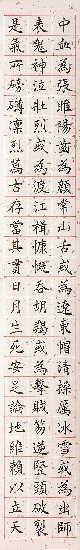 中血為張睢陽齒為顏常山舌或為遼東帽清操厲冰雪或為出師
表鬼神泣壯烈或為渡江楫慷慨吞胡羯或為擊賊笏逆豎頭破裂
是氣所磅礴凜烈萬古存當其貫日月生死安足論地維賴以立天